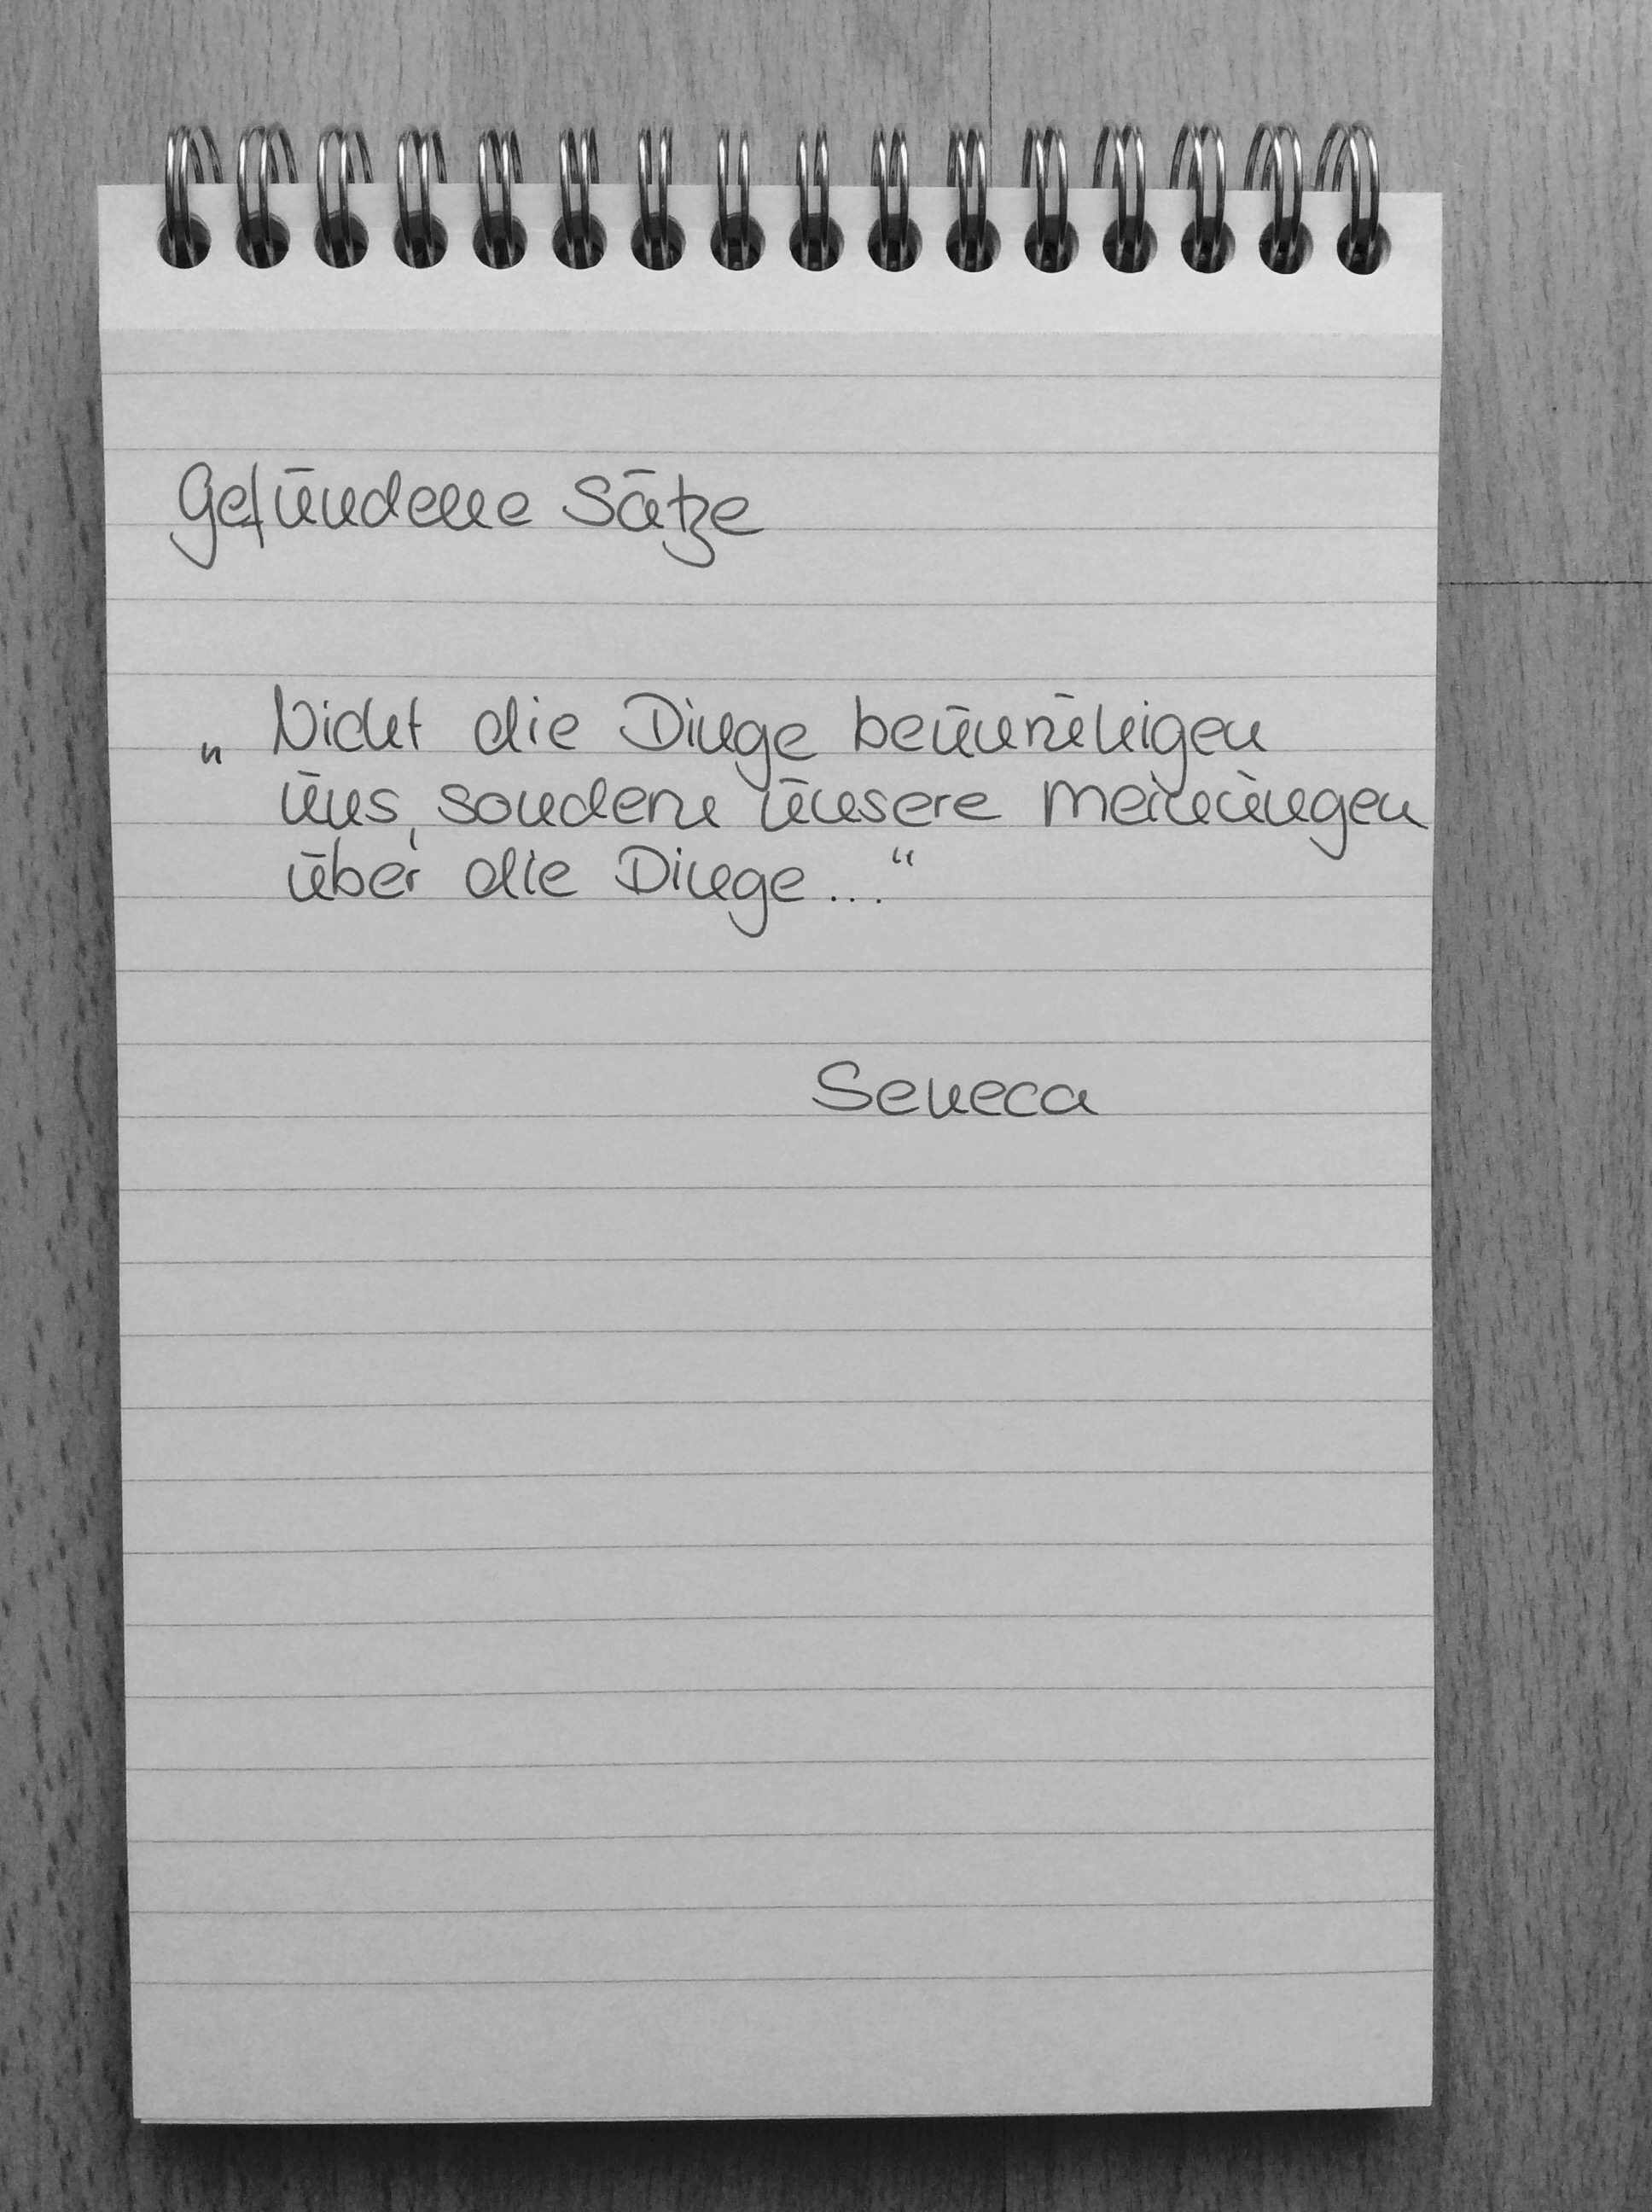 Gefundene Sätze
„Nicht die Dinge beunruhigen
uns, sondern unsere Meinungen
über die Dinge..."
Seneca